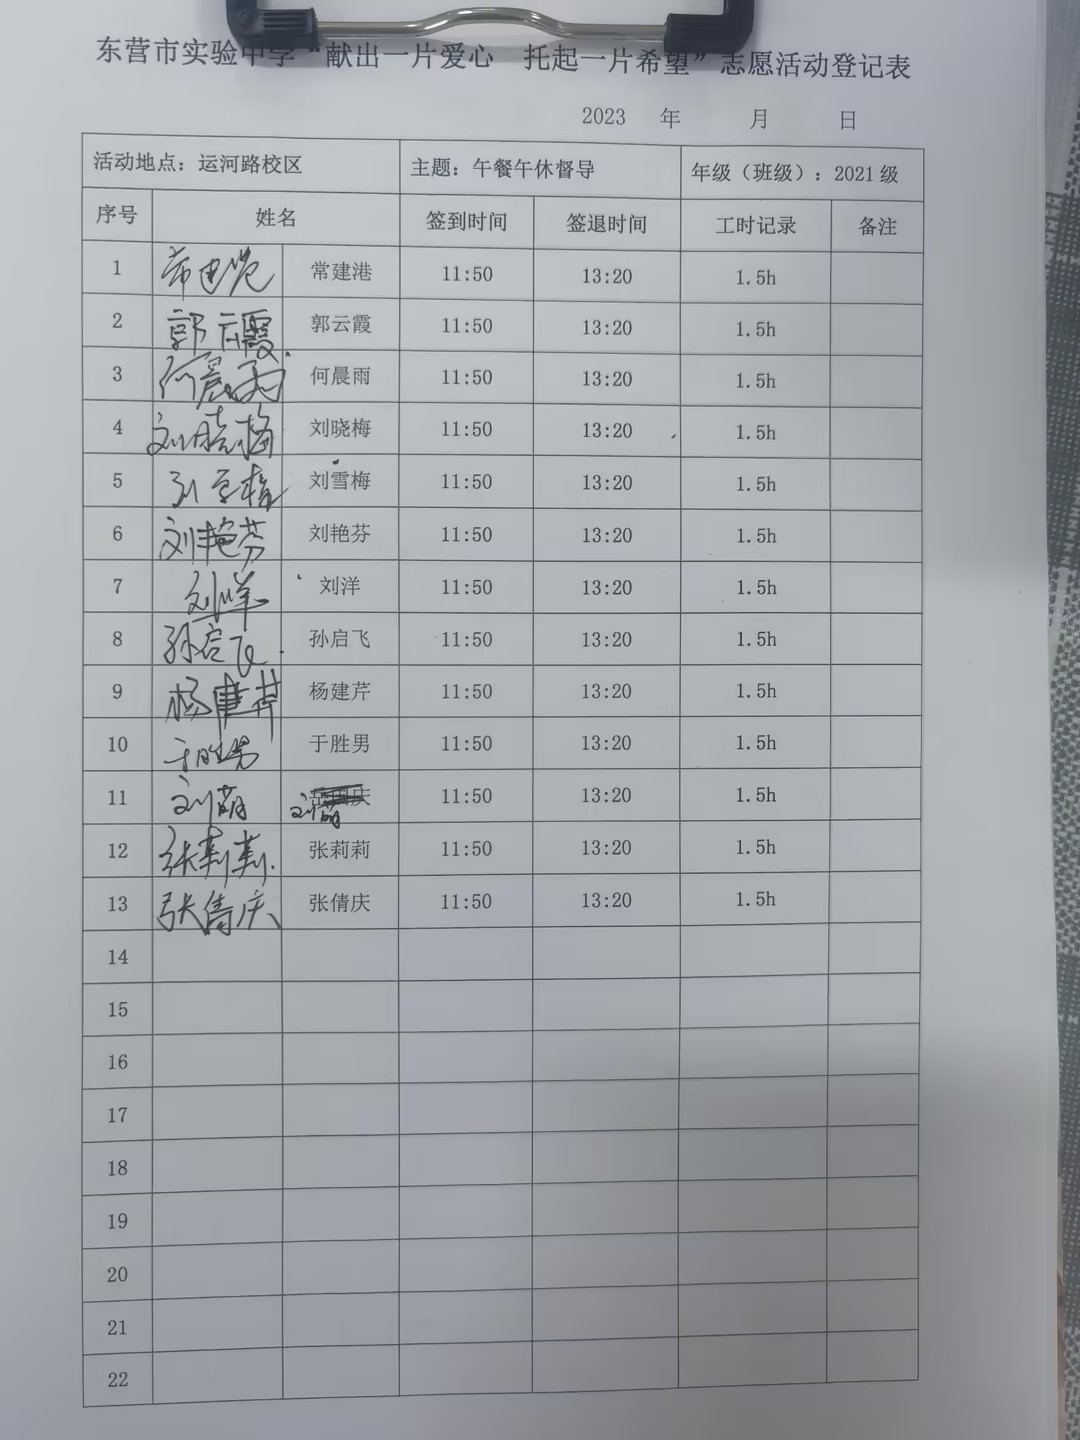 东营市实验中学“献出一片爱心 托起一片希望”志愿活动登记表
2023 年 月 日
活动地点：运河路校区 主题：午餐午休督导 年级（班级）：2021 级
序号 姓名 签到时间 签退时间 工时记录 备注
1 常建港 常建港 11:50 13:20 1.5h
2 郭云霞 郭云霞 11:50 13:20 1.5h
3 何晨雨 何晨雨 11:50 13:20 1.5h
4 刘晓梅 刘晓梅 11:50 13:20 1.5h
5 刘雪梅 刘雪梅 11:50 13:20 1.5h
6 刘艳芬 刘艳芬 11:50 13:20 1.5h
7 刘洋 刘洋 11:50 13:20 1.5h
8 孙启飞 孙启飞 11:50 13:20 1.5h
9 杨建芹 杨建芹 11:50 13:20 1.5h
10 于胜男 于胜男 11:50 13:20 1.5h
11 刘萌 刘萌 11:50 13:20 1.5h
12 张莉莉 张莉莉 11:50 13:20 1.5h
13 张倩庆 张倩庆 11:50 13:20 1.5h
14
15
16
17
18
19
20
21
22